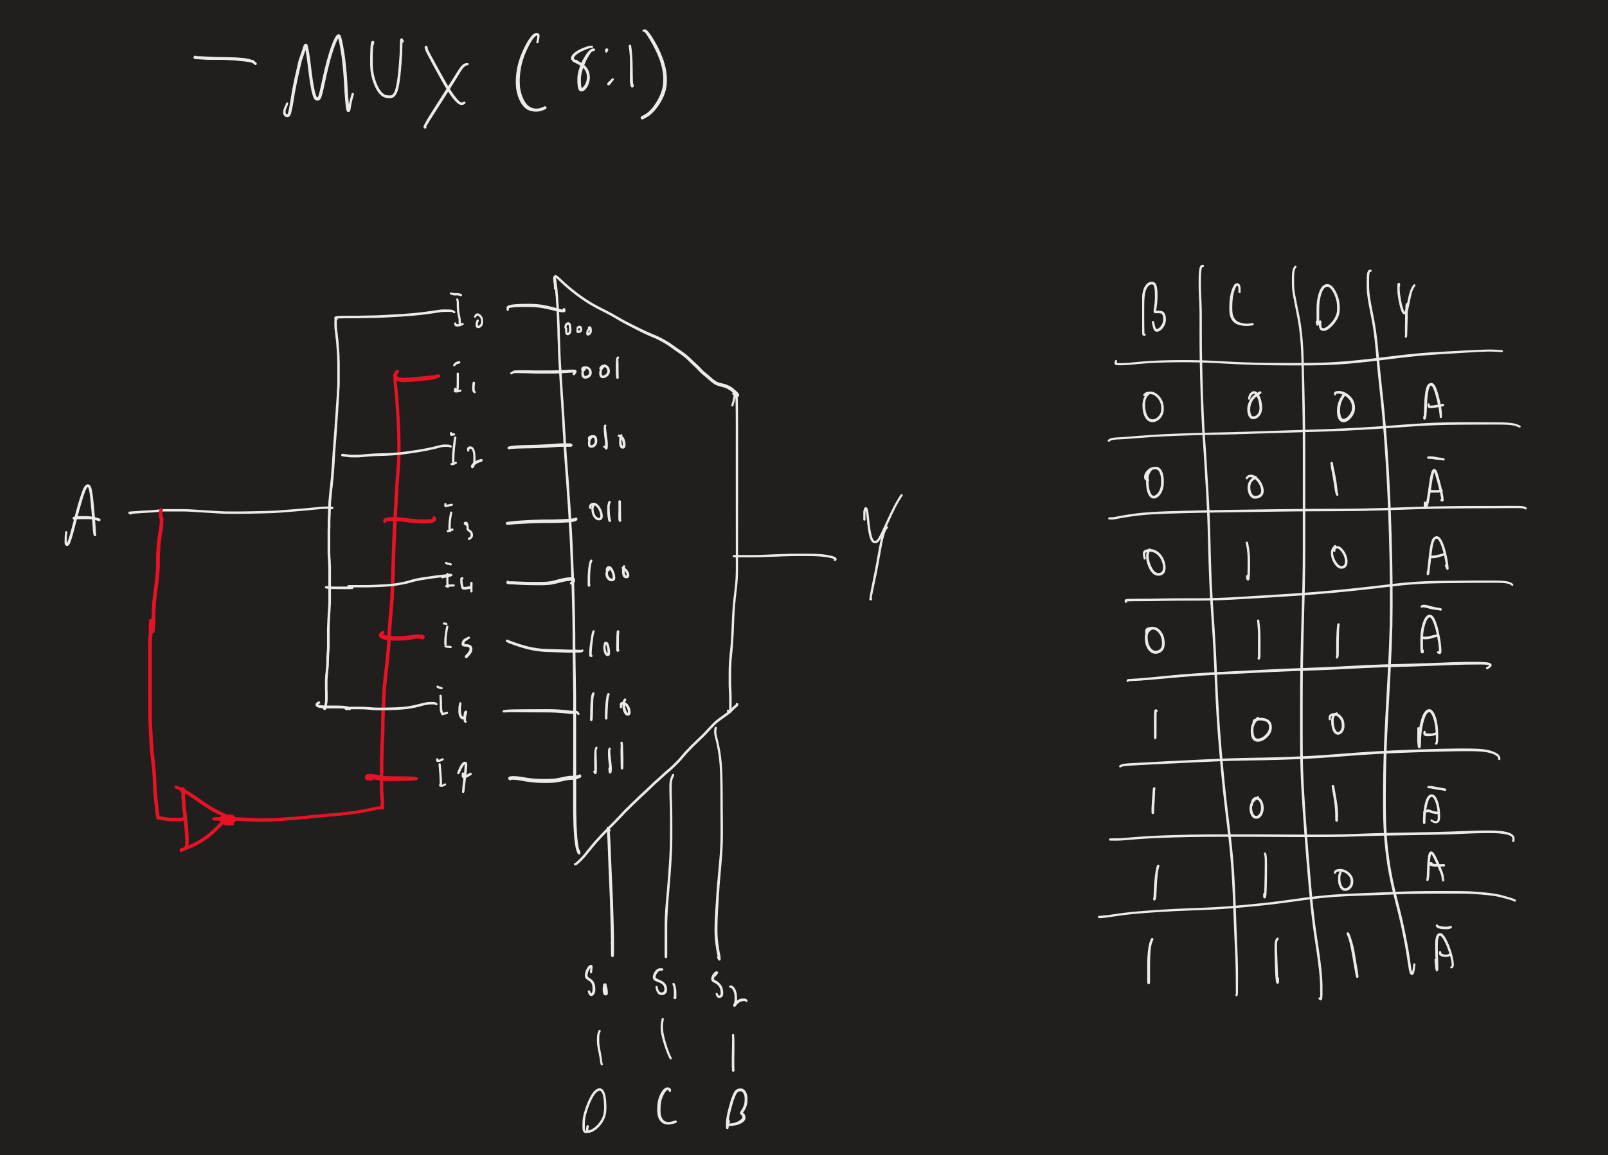 — MUX (8:1)
A
I₀ 000
I₁ 001
I₂ 010
I₃ 011
I₄ 100
I₅ 101
I₆ 110
I₇ 111
Y
S₀ S₁ S₂
D C B
B C D Y
0 0 0 A
0 0 1 Ā
0 1 0 A
0 1 1 Ā
1 0 0 A
1 0 1 Ā
1 1 0 A
1 1 1 Ā